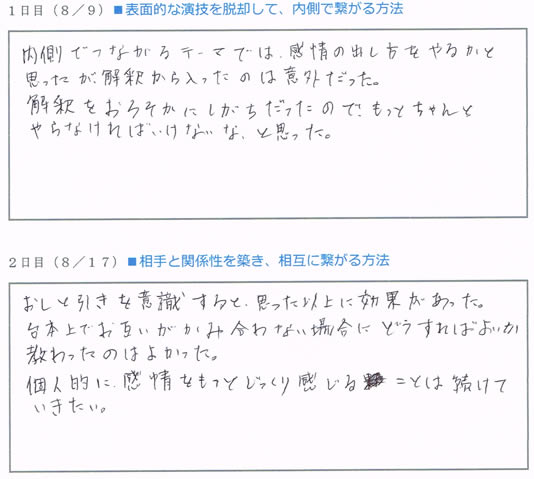 1日目（8／9）■表面的な演技を脱却して、内側で繋がる方法
内側でつながるテーマでは、感情の出し方をやるかと
思ったが、解釈から入ったのは意外だった。
解釈をおろそかにしがちだったので、もっとちゃんと
やらなければいけないな、と思った。
2日目（8／17）■相手と関係性を築き、相互に繋がる方法
おしと引きを意識すると、思った以上に効果があった。
台本上でお互いがかみ合わない場合にどうすればよいか
教わったのはよかった。
個人的に、感情をもっとじっくり感じることは続けて
いきたい。